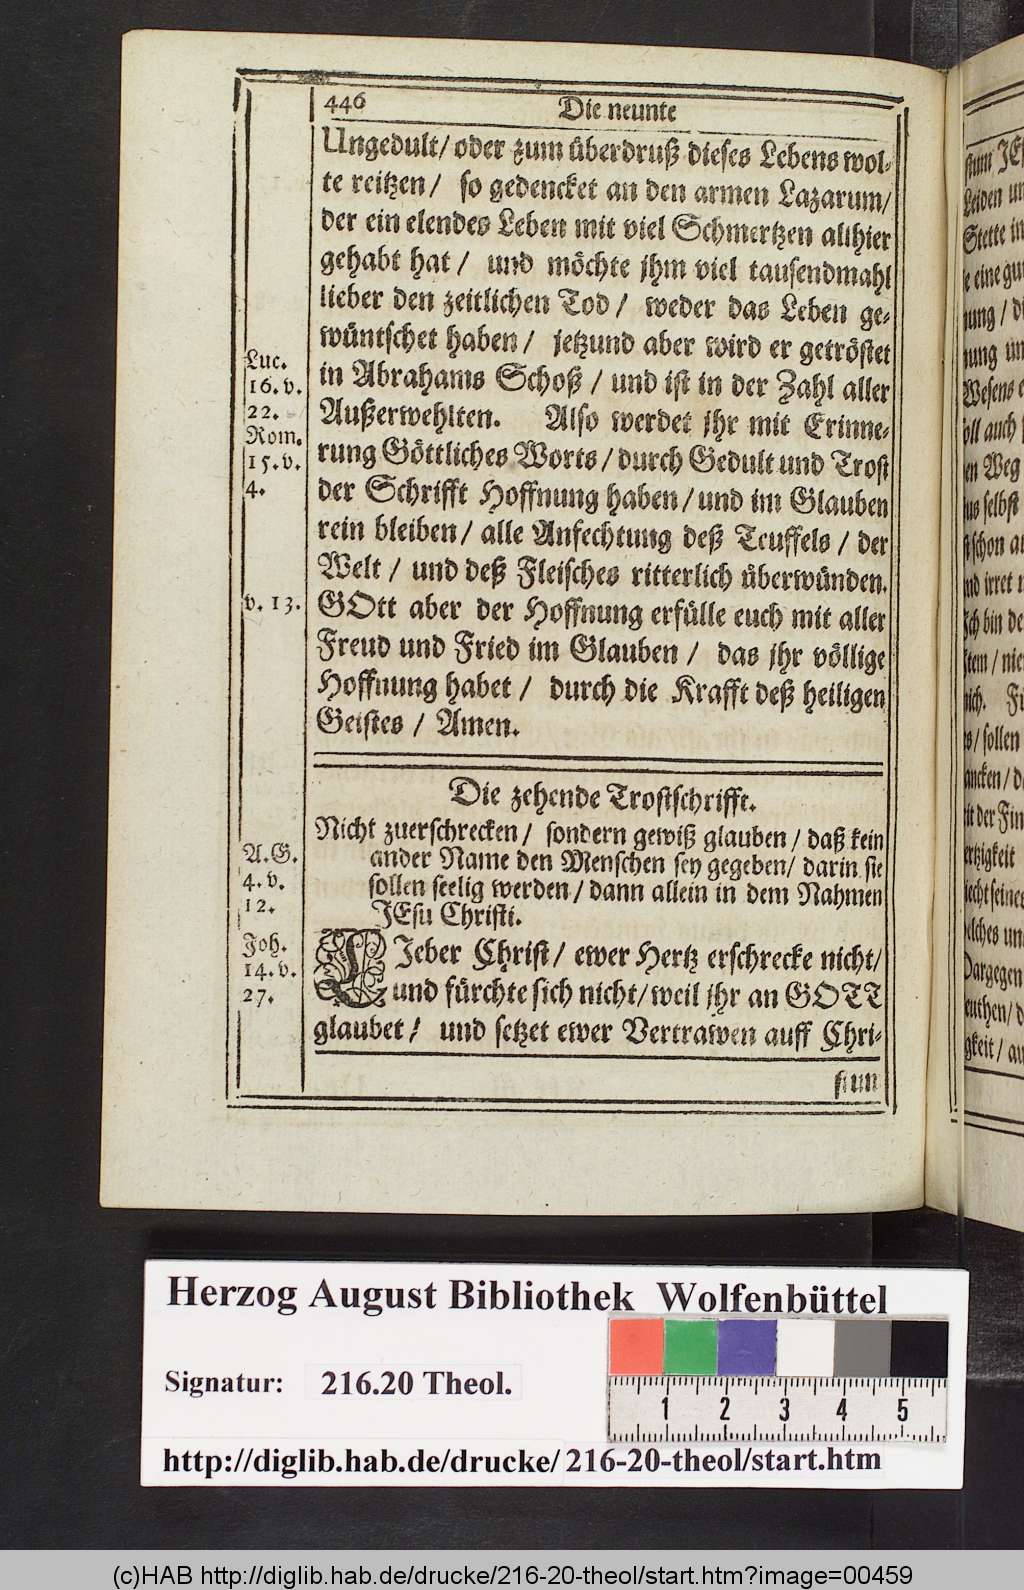 446
Die neunte
Ungedult/ oder zum überdruß dieses Lebens wol-
te reitzen/ so gedencket an den armen Lazarum/
der ein elendes Leben mit viel Schmertzen allhier
gehabt hat/ und möchte jhm viel tausendmahl
lieber den zeitlichen Tod/ weder das Leben ge-
wüntschet haben/ jetzund aber wird er getröstet
in Abrahams Schoß/ und ist in der Zahl aller
Außerwehlten. Also werdet jhr mit Erinne-
rung Göttliches Worts/ durch Gedult und Trost
der Schrifft Hoffnung haben/ und im Glauben
rein bleiben/ alle Anfechtung deß Teuffels/ der
Welt/ und deß Fleisches ritterlich überwünden.
GOtt aber der Hoffnung erfülle euch mit aller
Freud und Fried im Glauben/ das jhr völlige
Hoffnung habet/ durch die Krafft deß heiligen
Geistes/ Amen.
Luc.
16. v.
22.
Rom.
15. v.
4.
v. 13.
Die zehende Trostschrifft.
Nicht zuerschrecken/ sondern gewiß glauben/ daß kein
ander Name den Menschen sey gegeben/ darin sie
sollen seelig werden/ dann allein in dem Nahmen
JEsu Christi.
A. G.
4. v.
12.
Joh.
14. v.
27.
LIeber Christ/ ewer Hertz erschrecke nicht/
und fürchte sich nicht/ weil jhr an GOTT
glaubet/ und setzet ewer Vertrawen auff Chri-
stum
stum JE
Leiden un
Stette in
e eine gu
nung/ d
nung un
Wesens
soll auch
en Weg
us selbst
schon au
nd irret
Ich bin de
nich.
sollen
ancken/
it der Fin
ertzigkeit
welches un
Dargegen
gkeit/ au
Herzog August Bibliothek Wolfenbüttel
Signatur: 216.20 Theol.
1 2 3 4 5
http://diglib.hab.de/drucke/216-20-theol/start.htm
(c)HAB http://diglib.hab.de/drucke/216-20-theol/start.htm?image=00459